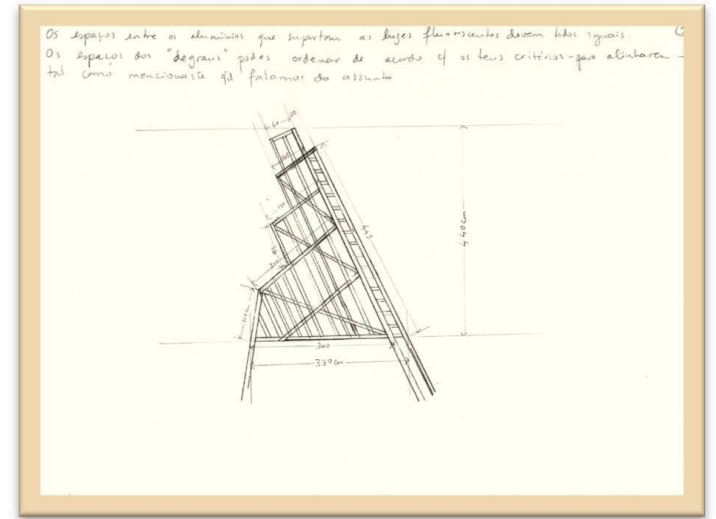 Os espaços entre os aluminios que suportam as luzes fluorescentes devem todos iguais.
Os espaços dos "degraus" podes ordenar de acordo c/ os teus critérios - para alinharem -
tal como mencionaste qd falamos do assunto
60
495
440cm
300
339cm